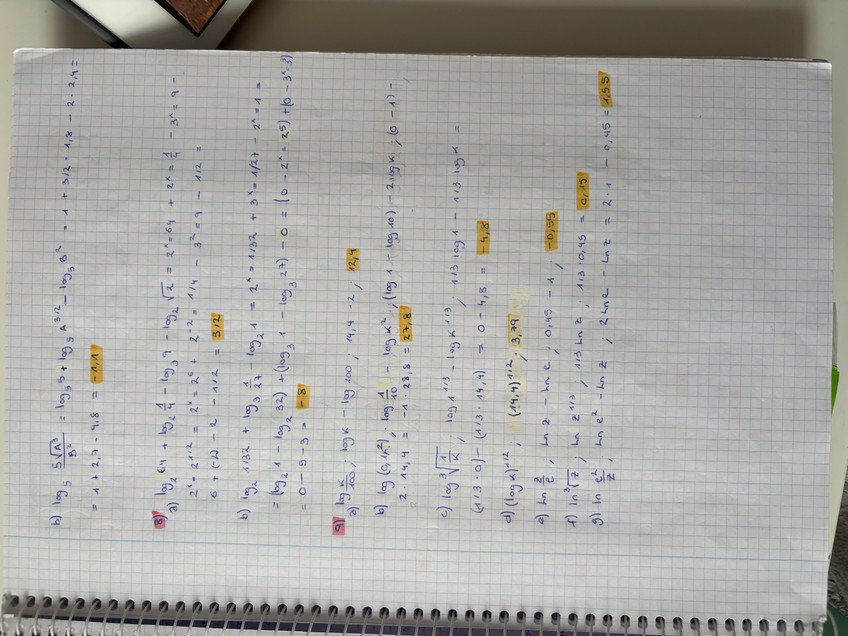 b) log₅ 5√A³/B² = log₅5 + log₅A^3/2 - log₅B² = 1 + 3/2 · 1,8 - 2 · 2,4 =
= 1 + 2,7 - 4,8 = -1,1
8)
a) log₂ 64 + log₂ 1/4 - log₃ 9 - log₂ √2 = 2ˣ = 64 + 2ˣ = 1/4 - 3ˣ = 9 -
2ˣ = 2^1/2 = 2ˣ = 2⁶ + 2⁻² = 1/4 - 3² = 9 - 1/2 =
6 + (-2) - 2 - 1/2 = 3/2
b) log₂ 1/32 + log₃ 1/27 - log₂ 1 = 2ˣ = 1/32 + 3ˣ = 1/27 - 2ˣ = 1 =
= (log₂ 1 - log₂ 32) + (log₃ 1 - log₃ 27) - 0 = (0 - 2ˣ = 25) + (0 - 3ˣ = 3)
= 0 - 5 - 3 = -8
9)
a) log K/100 ; log K - log 100 ; 14,4 - 2 ; 12,4
b) log (0,1K²) ; log 1/10 - log K² ; (log 1 - log 10) - 2 log K ; (0 - 1) -
2 · 14,4 = -1 · 28,8 = 27,8
c) log ³√1/K ; log 1^1/3 - log K^1/3 ; 1/3 log 1 - 1/3 log K =
(1/3 · 0) - (1/3 · 14,4) = 0 - 4,8 = -4,8
d) (log K)^1/2 ; (14,4)^1/2 ; 3,79
e) ln z/e ; ln z - ln e ; 0,45 - 1 ; -0,55
f) ln ³√z ; ln z^1/3 ; 1/3 ln z ; 1/3 · 0,45 = 0,15
g) ln e²/z ; ln e² - ln z ; 2 ln e - ln z = 2 · 1 - 0,45 = 1,55